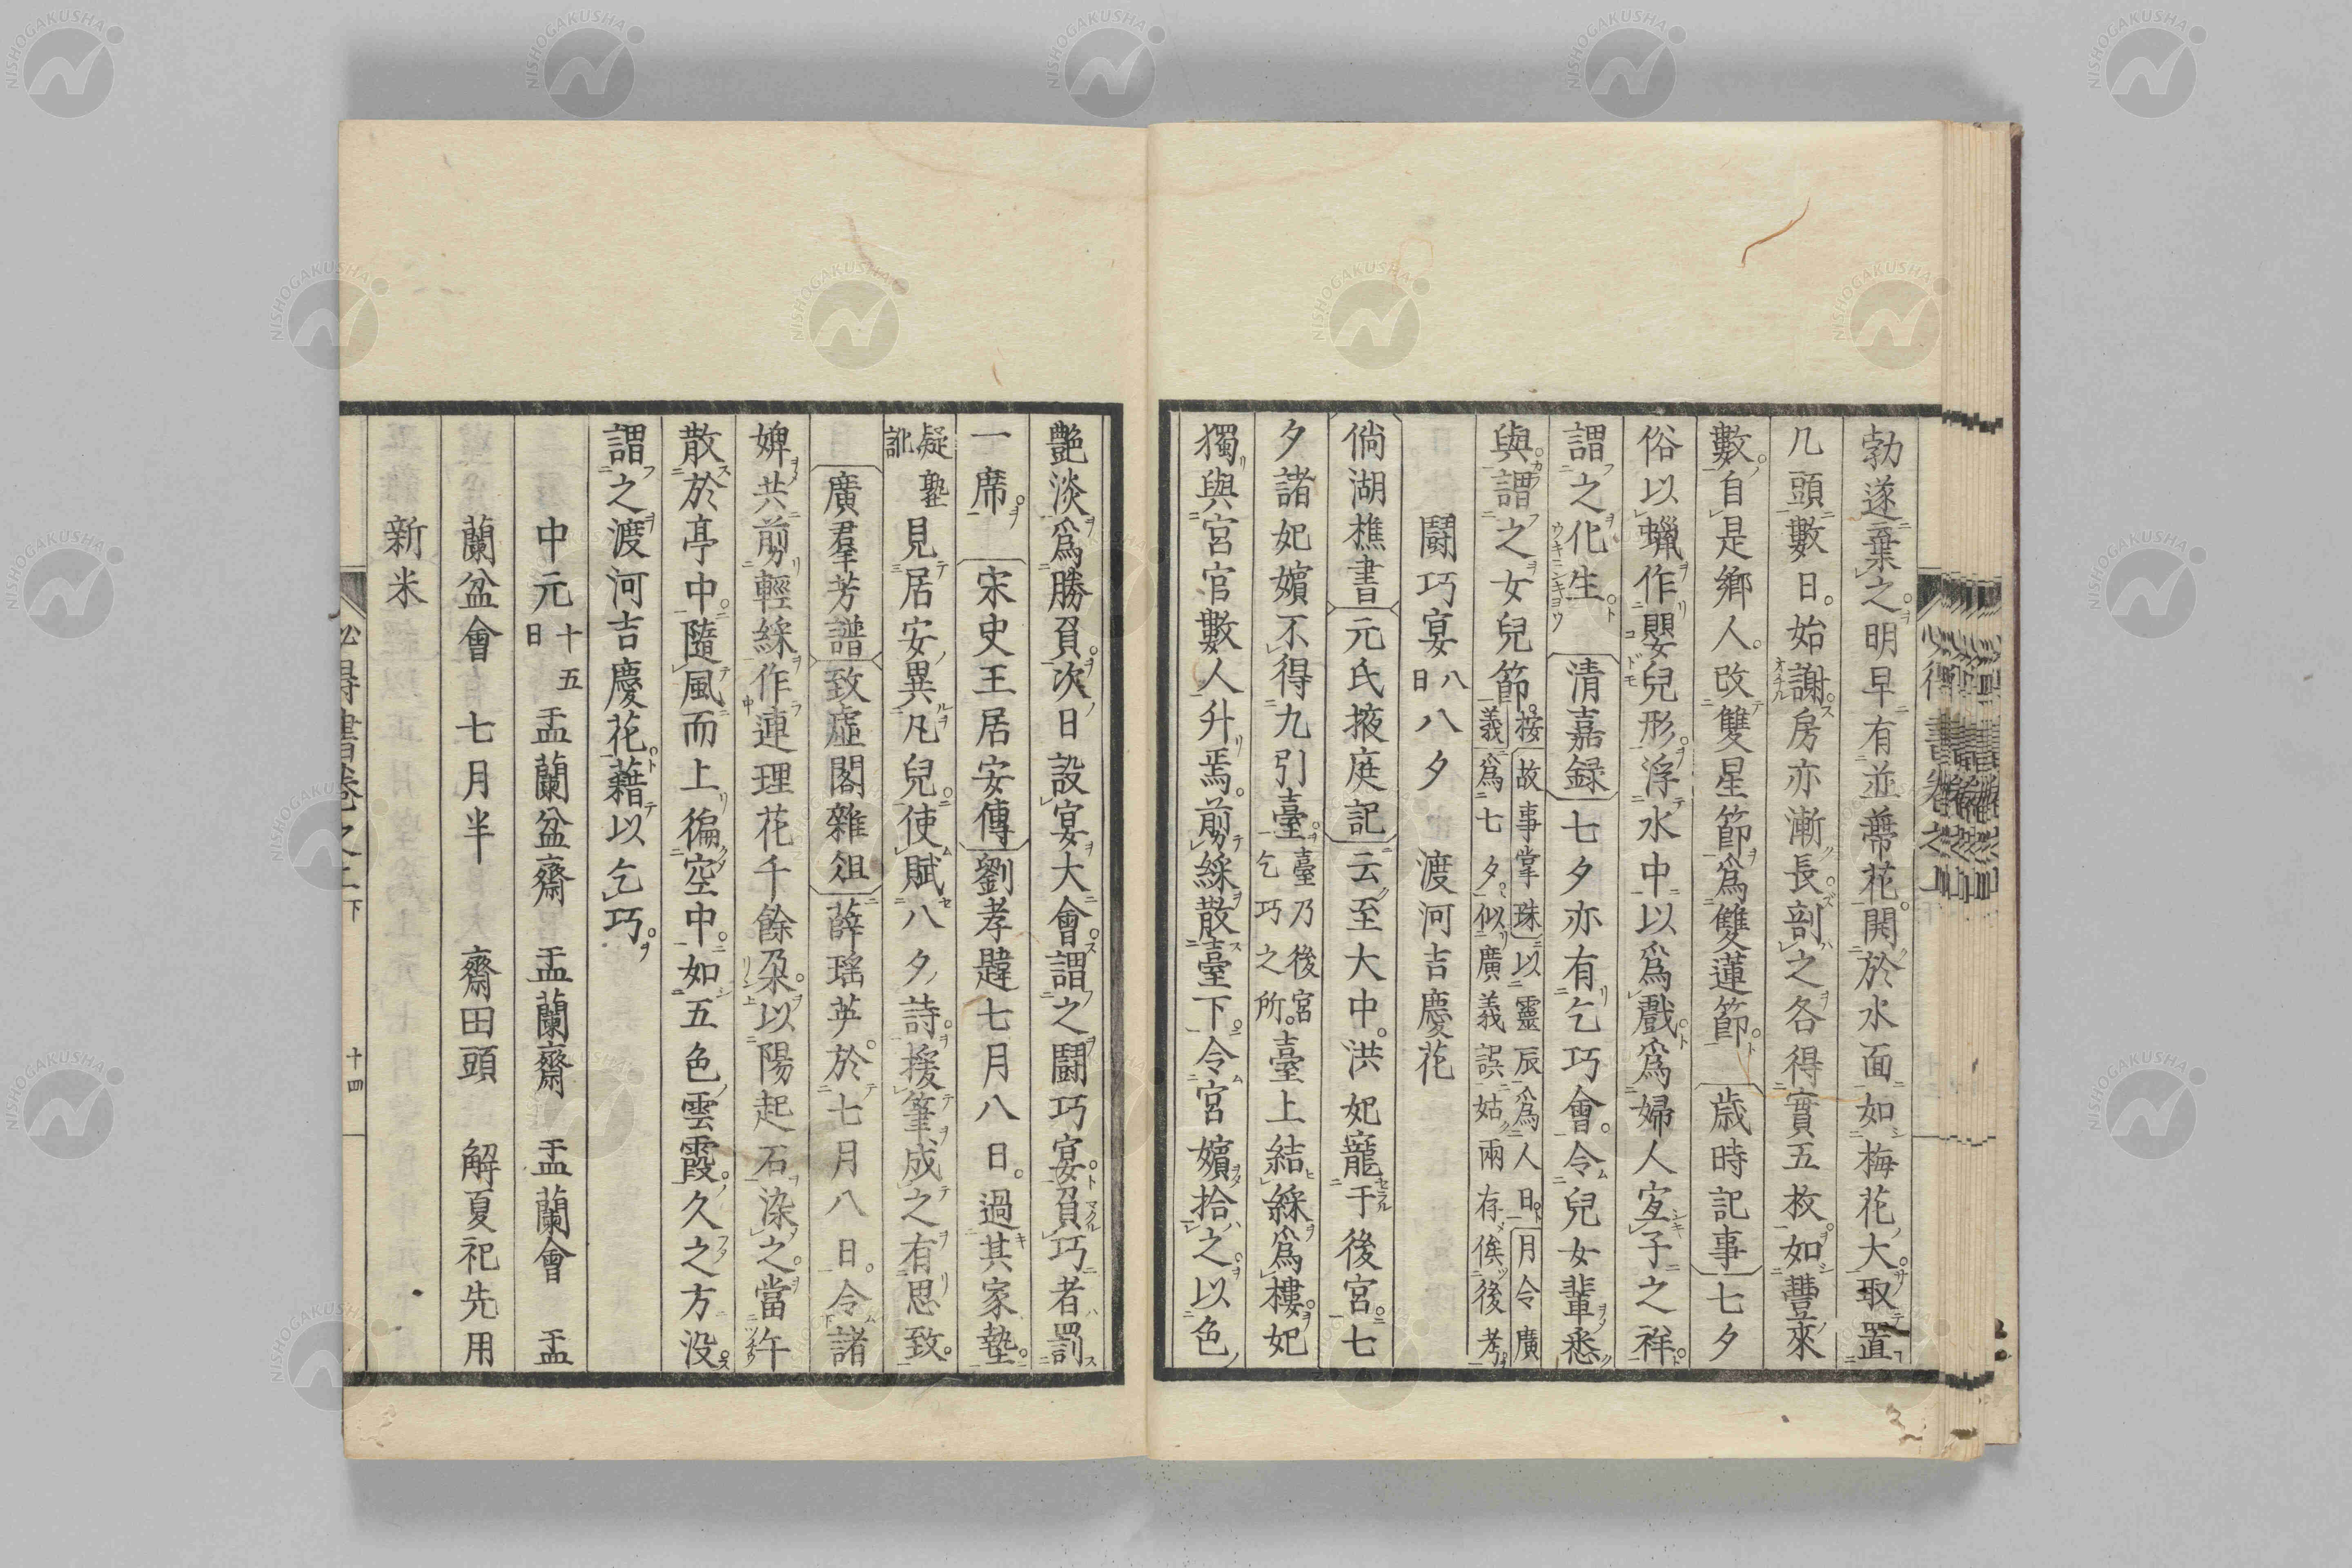 勃遂棄之明早有並蔕花開於水面如梅花大取置
几頭數日始謝房亦漸長剖之各得實五枚如豐來
數自是鄉人改雙星節爲雙蓮節歲時記事七夕
俗以蠟作嬰兒形浮水中以爲戲爲婦人宐子之祥
謂之化生清嘉録七夕亦有乞巧會令兒女輩悉
與謂之女兒節按故事掌珠以靈辰爲人日月令廣
義爲七夕似廣義誤姑兩存俟後考
鬪巧宴八日 八夕 渡河吉慶花
倘湖樵書元氏掖庭記云至大中洪妃寵于後宮七
夕諸妃嬪不得九引臺臺乃後宮乞巧之所臺上結綵爲樓妃
獨與宮官數人升焉剪綵散臺下令宮嬪拾之以色
艷淡爲勝負次日設宴大會謂之鬪巧宴負巧者罰
一席宋史王居安傳劉孝韙七月八日過其家塾
疑塾訛見居安異凡兒使賦八夕詩援筆成之有思致
廣羣芳譜致虛閣雜俎薛瑤英於七月八日令諸
婢共剪輕綵作連理花千餘朶以陽起石染之當午
散於亭中隨風而上徧空中如五色雲霞久之方没
謂之渡河吉慶花藉以乞巧
中元十五日 盂蘭盆齋 盂蘭齋 盂蘭會 盂
蘭盆會 七月半 齋田頭 解夏祀先用
新米
必得書卷之上下 十四
NISHOGAKUSHA